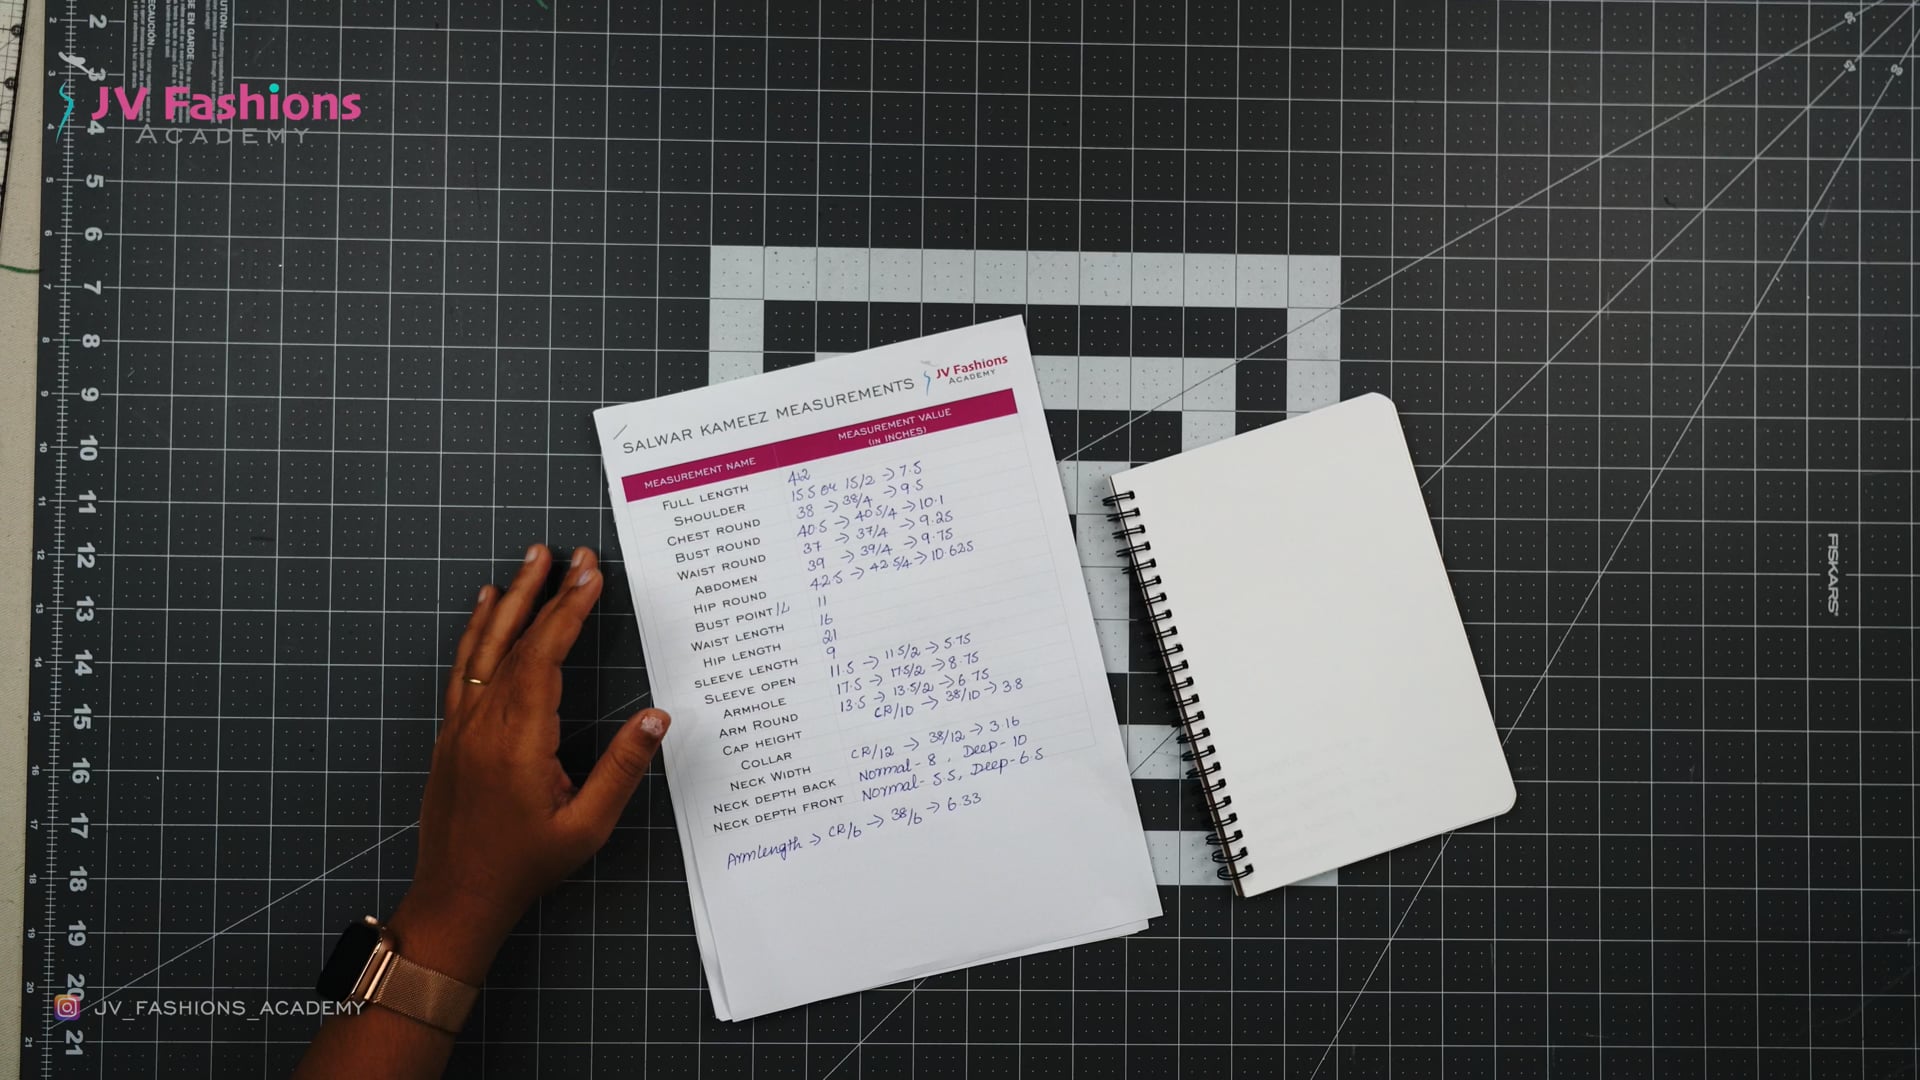 JV Fashions
ACADEMY
SALWAR KAMEEZ MEASUREMENTS
JV Fashions
ACADEMY
MEASUREMENT NAME MEASUREMENT VALUE (IN INCHES)
FULL LENGTH 42
SHOULDER 15.5 or 15/2 -> 7.5
CHEST ROUND 38 -> 38/4 -> 9.5
BUST ROUND 40.5 -> 40.5/4 -> 10.1
WAIST ROUND 37 -> 37/4 -> 9.25
ABDOMEN 39 -> 39/4 -> 9.75
HIP ROUND 42.5 -> 42.5/4 -> 10.625
BUST POINT/L 11
WAIST LENGTH 16
HIP LENGTH 21
SLEEVE LENGTH 9
SLEEVE OPEN 11.5 -> 11.5/2 -> 5.75
ARMHOLE 17.5 -> 17.5/2 -> 8.75
ARM ROUND 13.5 -> 13.5/2 -> 6.75
CAP HEIGHT CR/10 -> 38/10 -> 3.8
COLLAR
NECK WIDTH CR/12 -> 38/12 -> 3.16
NECK DEPTH BACK Normal - 8, Deep - 10
NECK DEPTH FRONT Normal - 5.5, Deep - 6.5
Armlength -> CR/6 -> 38/6 -> 6.33
FISKARS
JV_FASHIONS_ACADEMY
2
3
4
5
6
7
8
9
10
11
12
13
14
15
16
17
18
19
20
21